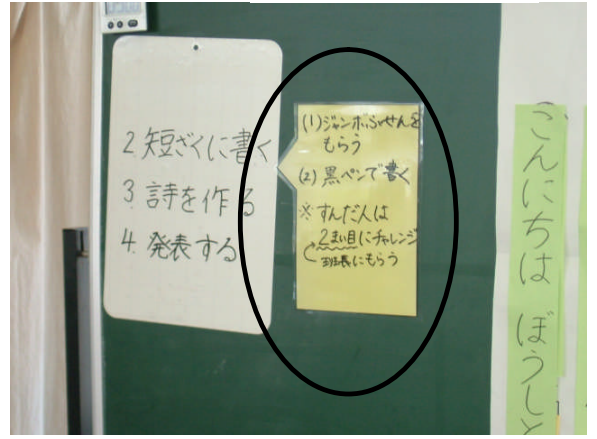 2. 短ざくに書く
3. 詩を作る
4. 発表する
(1)ジャンボふせんを
もらう
(2) 黒ペンで書く
※ すんだ人は
2まい目にチャレンジ
班長にもらう
こんにちは ぼうしと